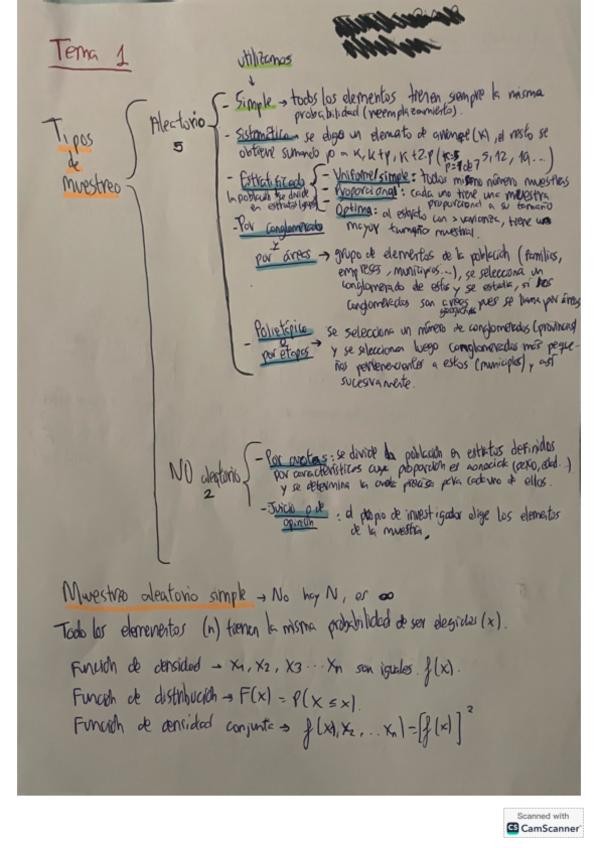 Tema 1
utilizamos
Tipos de muestreo
Aleatorio 5
- Simple → todos los elementos tienen siempre la misma
probabilidad (reemplazamiento).
- Sistemático - se elige un elemento de arranque (k), el resto se
obtiene sumando p → k, k+p, k+2·p (k=5 p=7 5, 12, 19...)
- Estratificado
la población se divide
en estratos
- Uniforme/simple: todos mismo número muestras
- Proporcional: cada uno tiene una muestra
proporcional a su tamaño
- Óptima: al estrato con > varianza, tiene un
mayor tamaño muestral.
- Por conglomerado
por áreas → grupo de elementos de la población (familias,
empresas, municipios...), se selecciona un
conglomerado de estos y se estudia, si los
conglomerados son áreas geográficas pues se llama por áreas
- Polietápico o
por etapas → se selecciona un número de conglomerados (provincias)
y se selecciona luego conglomerados más peque-
ños pertenecientes a estos (municipios) y así
sucesivamente.
NO aleatorio 2
- Por cuotas: se divide la población en estratos definidos
por características cuya proporción es conocida (sexo, edad...)
y se determina la cuota precisa para cada uno de ellos.
- Juicio o de
opinión : el propio de investigador elige los elementos
de la muestra.
Muestreo aleatorio simple → No hay N, es ∞
Todo los elementos (n) tienen la misma probabilidad de ser elegidos (x).
Función de densidad → x1, x2, x3 ... xn son iguales f(x).
Función de distribución → F(x) = P(X ≤ x).
Función de densidad conjunta → f(x1, x2, ... xn) = [f(x)]²
Scanned with
CS CamScanner